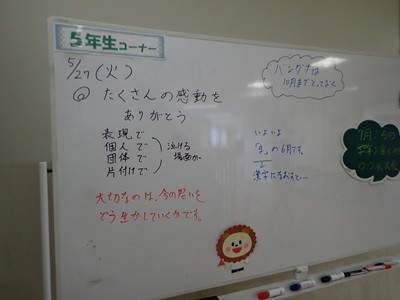 5年生コーナー
5/27(火)
◎ たくさんの感動を
ありがとう
表現で
個人で
団体で
片付けで
泣ける
場面が
大切なのは、今の思いを
どう生かしていくかです。
バンダナは
10月までとっておく
いよいよ
の6月です。
漢字になおすと…